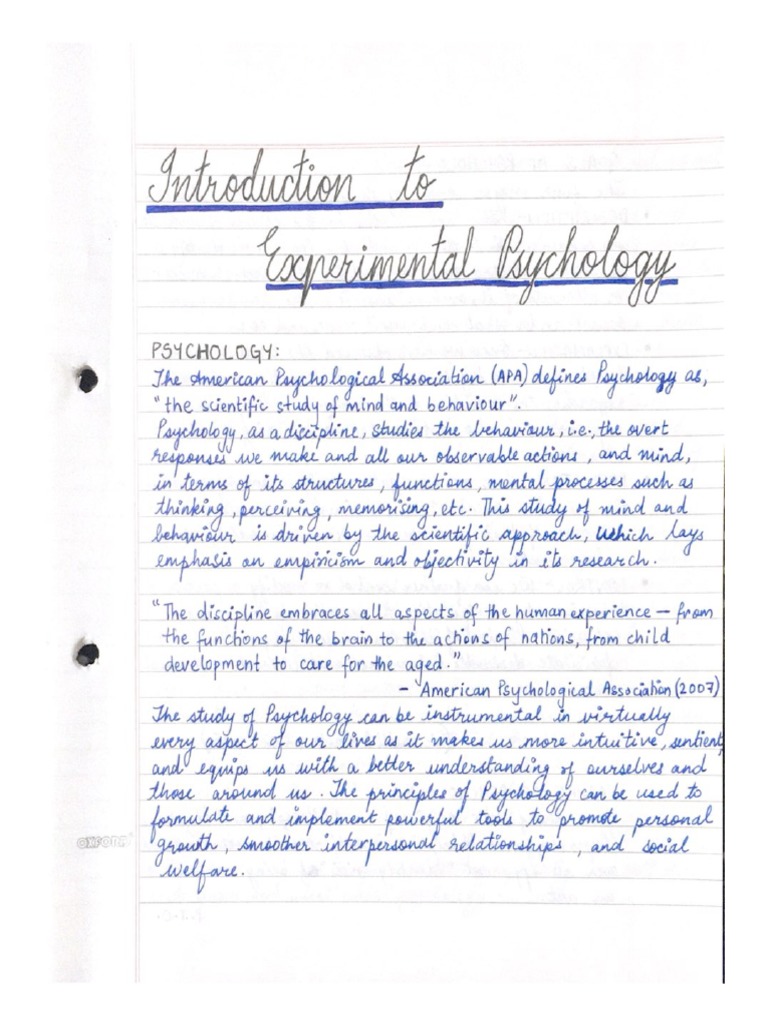 Introduction to
Experimental Psychology
PSYCHOLOGY:
The American Psychological Association (APA) defines Psychology as,
"the scientific study of mind and behaviour".
Psychology, as a discipline, studies the behaviour, i.e., the overt
responses we make and all our observable actions, and mind,
in terms of its structures, functions, mental processes such as
thinking, perceiving, memorising, etc. This study of mind and
behaviour is driven by the scientific approach, which lays
emphasis on empiricism and objectivity in its research.
"The discipline embraces all aspects of the human experience — from
the functions of the brain to the actions of nations, from child
development to care for the aged."
- American Psychological Association (2007)
The study of Psychology can be instrumental in virtually
every aspect of our lives as it makes us more intuitive, sentient,
and equips us with a better understanding of ourselves and
those around us. The principles of Psychology can be used to
formulate and implement powerful tools to promote personal
growth, smoother interpersonal relationships, and social
welfare.
OXFORD